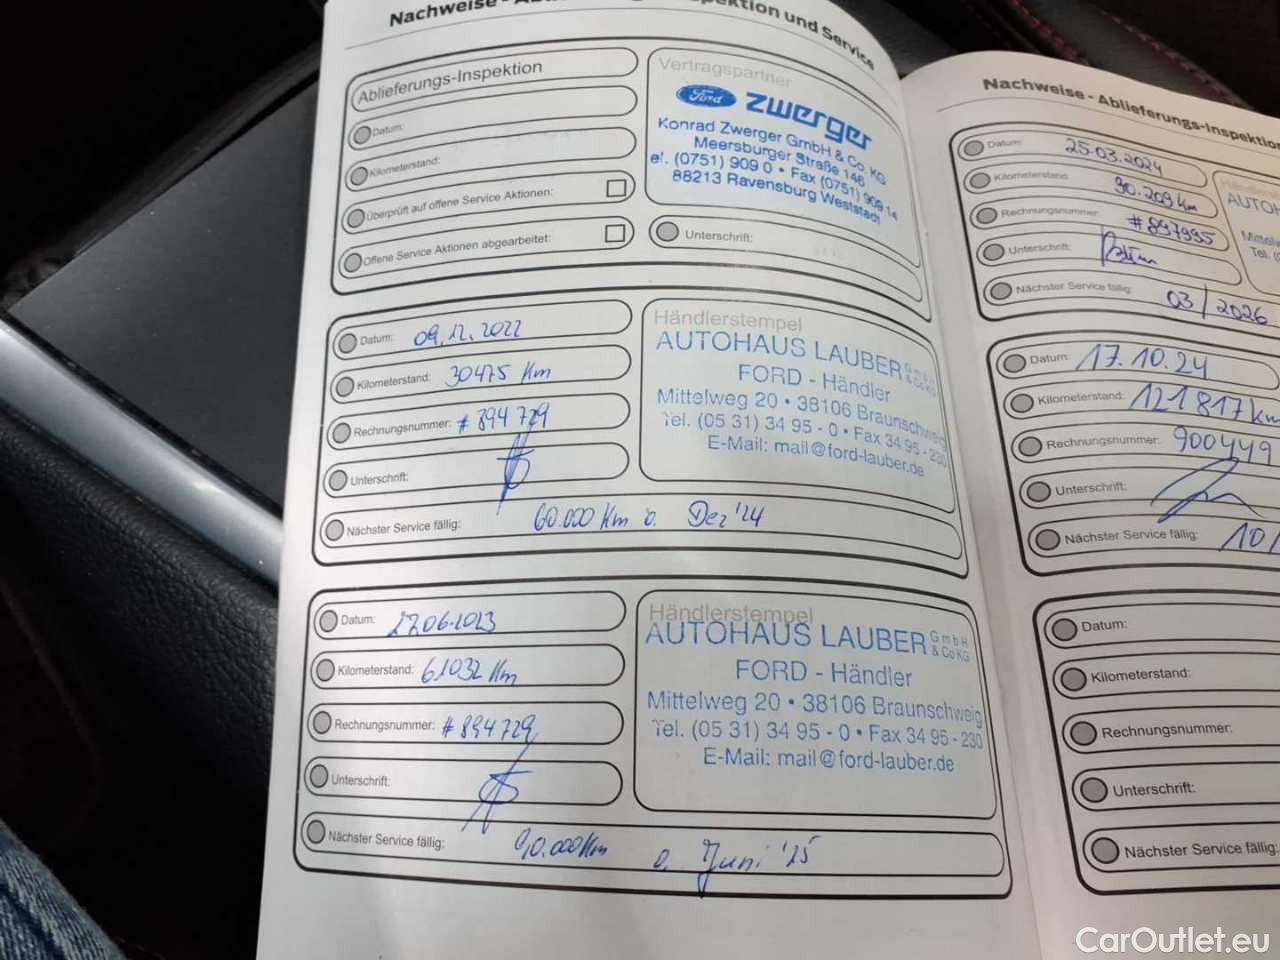 Nachweise - Ablieferungs-Inspektion und Service
Ablieferungs-Inspektion
Datum:
Kilometerstand:
Überprüft auf offene Service Aktionen:
Offene Service Aktionen abgearbeitet:
Vertragspartner
Ford zwerger
Konrad Zwerger GmbH & Co. KG
Meersburger Straße 146
el. (0751) 909 0 • Fax (0751) 909 14
88213 Ravensburg Weststadt
Unterschrift:
Datum: 09.12.2022
Kilometerstand: 30475 Km
Rechnungsnummer: # 894729
Unterschrift:
Nächster Service fällig: 60.000 Km o. Dez '24
Händlerstempel
AUTOHAUS LAUBER GmbH & Co KG
FORD - Händler
Mittelweg 20 • 38106 Braunschweig
Tel. (05 31) 34 95 - 0 • Fax 34 95 - 230
E-Mail: mail@ford-lauber.de
Datum: 27.06.2023
Kilometerstand: 61032 Km
Rechnungsnummer: # 894729
Unterschrift:
Nächster Service fällig: 90.000Km o. Juni '25
Händlerstempel
AUTOHAUS LAUBER GmbH & Co KG
FORD - Händler
Mittelweg 20 • 38106 Braunschweig
Tel. (05 31) 34 95 - 0 • Fax 34 95 - 230
E-Mail: mail@ford-lauber.de
Nachweise - Ablieferungs-Inspektion
Datum: 25.03.2024
Kilometerstand: 90.209 Km
Rechnungsnummer: # 897995
Unterschrift:
Nächster Service fällig: 03/2026
Händlers
AUTOH
Mittelw
Tel. (0
Datum: 17.10.24
Kilometerstand: 121817 Km
Rechnungsnummer: 900449
Unterschrift:
Nächster Service fällig: 10/
Datum:
Kilometerstand:
Rechnungsnummer:
Unterschrift:
Nächster Service fällig:
CarOutlet.eu